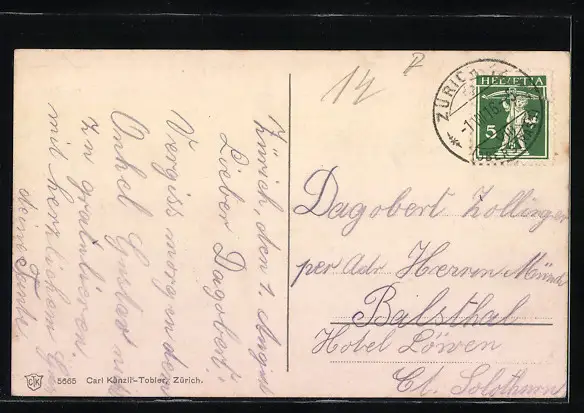 Zürich, den 1. August
Lieber Dagobert!
Vergiss morgen den
Onkel Gustav nicht
zu gratulieren.
mit herzlichem
deine Tante
14
ZÜRICH
HELVETIA
5
Dagobert Zollinger
per Adr. Herren
Balsthal
Hotel Löwen
Ct. Solothurn
5665 Carl Künzli-Tobler, Zürich.